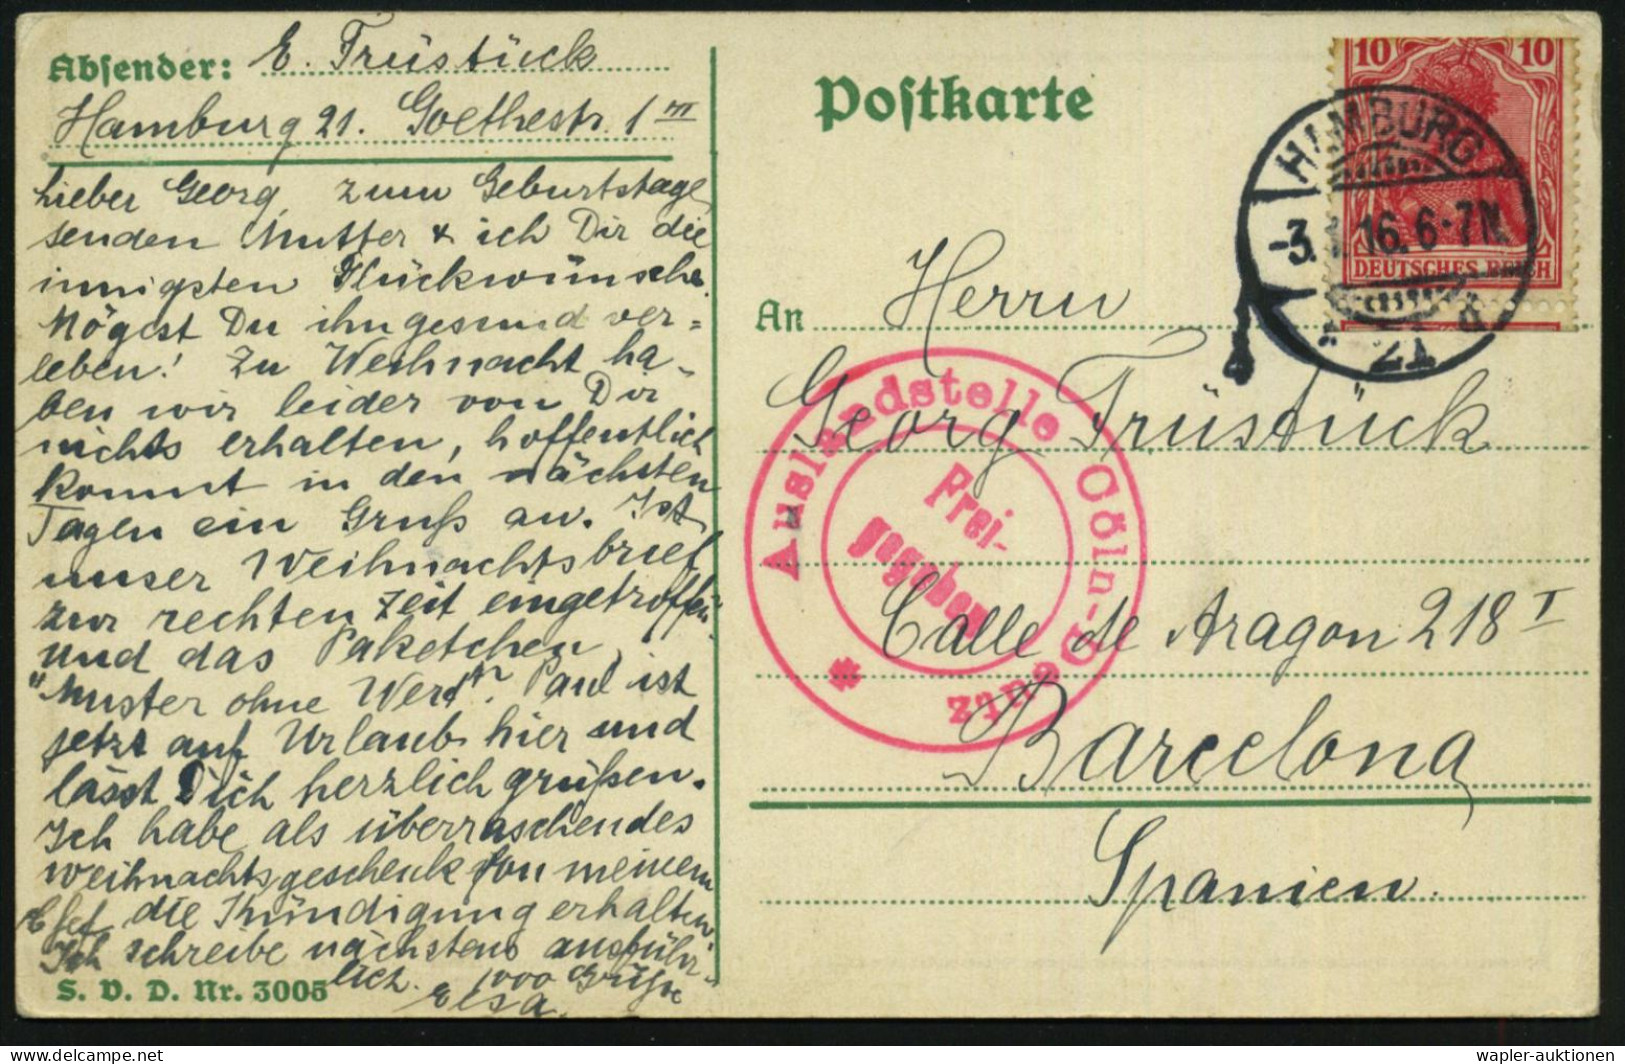 Absender: E. Früstück
Hamburg 21. Goethestr. 1 III
Lieber Georg, zum Geburtstage
senden Mutter & ich Dir die
innigsten Glückwünsche.
Mögest Du ihn gesund ver=
leben! Zu Weihnacht ha-
ben wir leider von Dir
nichts erhalten, hoffentlich
kommt in den nächsten
Tagen ein Gruß an. Ist
unser Weihnachtsbrief
zur rechten Zeit eingetroffen
und das Paketchen
"Muster ohne Wert"? Paul ist
jetzt auf Urlaub hier und
lässt Dich herzlich grüßen.
Ich habe als überraschendes
Weihnachtsgeschenk von meinem
Chef die Kündigung erhalten.
Ich schreibe nächstens ausführ-
lich. 1000 Grüße
Elsa.
S. V. D. Nr. 3005
Postkarte
10 10
DEUTSCHES REICH
HAMBURG
-3. 1. 16. 6-7N.
* 21 d
An Herrn
Georg Früstück
Calle de Aragon 218 I
Barcelona
Spanien.
Auslandstelle Cöln-Deutz
*
Frei-
gegeben
wapler-auktionen
delcampe.net
wapler-auktionen